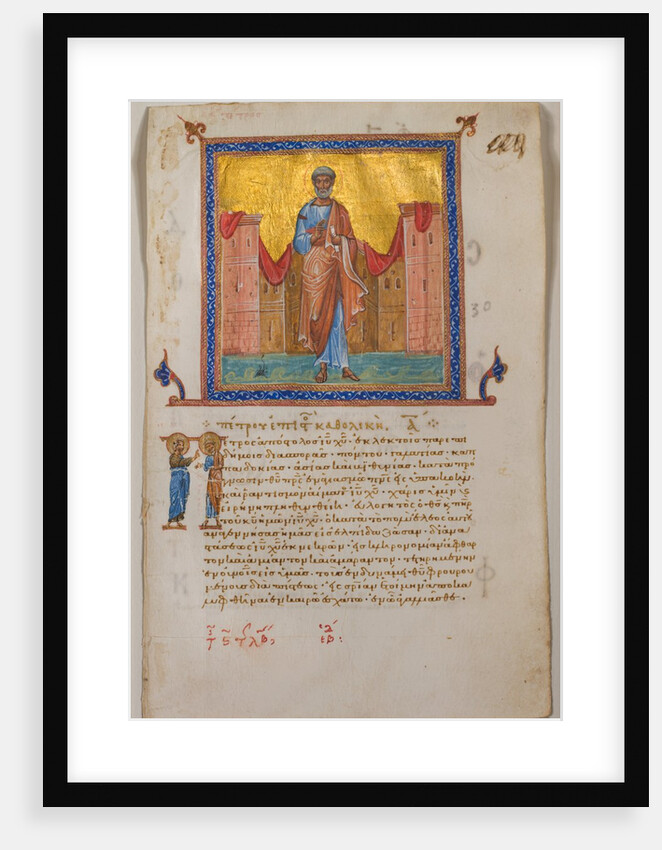 πέτρου ἐπιστο καθολικὴ Α
Πέτρος ἀπόστολος ἰυ χυ · ἐκλεκτοῖς παρεπι
δήμοις διασπορᾶς · πόντου · γαλατίας · καπ
παδοκίας · ἀσίας καὶ βιθυνίας · κατὰ πρό
γνωσιν θυ πρς ἐν ἁγιασμῷ πνς εἰς ὑπακοὴν
καὶ ῥαντισμὸν αἵματος ιυ χυ · χάρις ὑμῖν κ
εἰρήνη πληθυνθείη · εὐλογητὸς ὁ θς κ πηρ
τοῦ κυ ἡμῶν ιυ χυ · ὁ κατὰ τὸ πολὺ ἔλεος αὐτοῦ
ἀναγεννήσας ἡμᾶς εἰς ἐλπίδα ζῶσαν · δι' ἀνα
στάσεως ιυ χυ ἐκ νεκρῶν · εἰς κληρονομίαν ἄφθαρ
τον καὶ ἀμίαντον καὶ ἀμάραντον · τετηρημένην
ἐν οὐνοῖς εἰς ὑμᾶς · τοὺς ἐν δυνάμει θυ φρουρου
μένους διὰ πίστεως · εἰς σρίαν ἑτοίμην ἀποκα
λυφθῆναι ἐν καιρῷ ἐσχάτῳ · ἐν ᾧ ἀγαλλιᾶσθε .